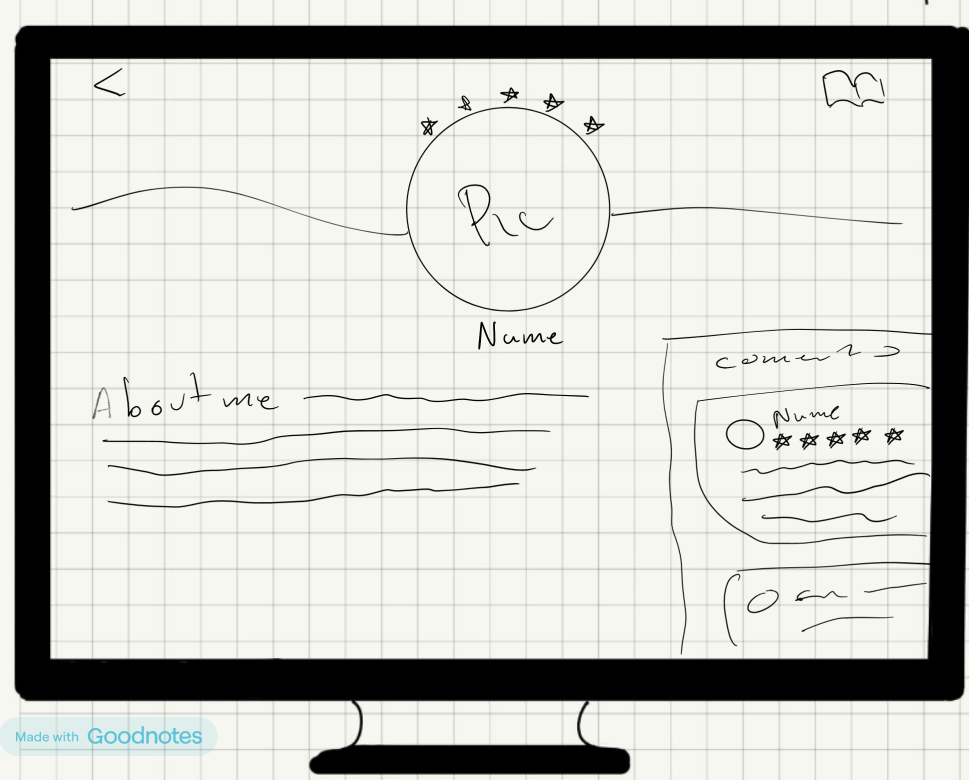 Pic
Name
About me
coments
Name
Made with Goodnotes